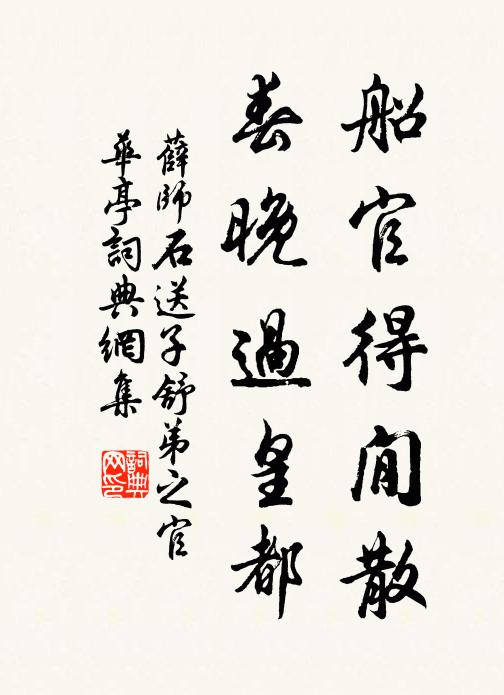 船官得閒散
春晚過皇都
薛師石送子舒弟之官
華亭詞典網集
詞典網印